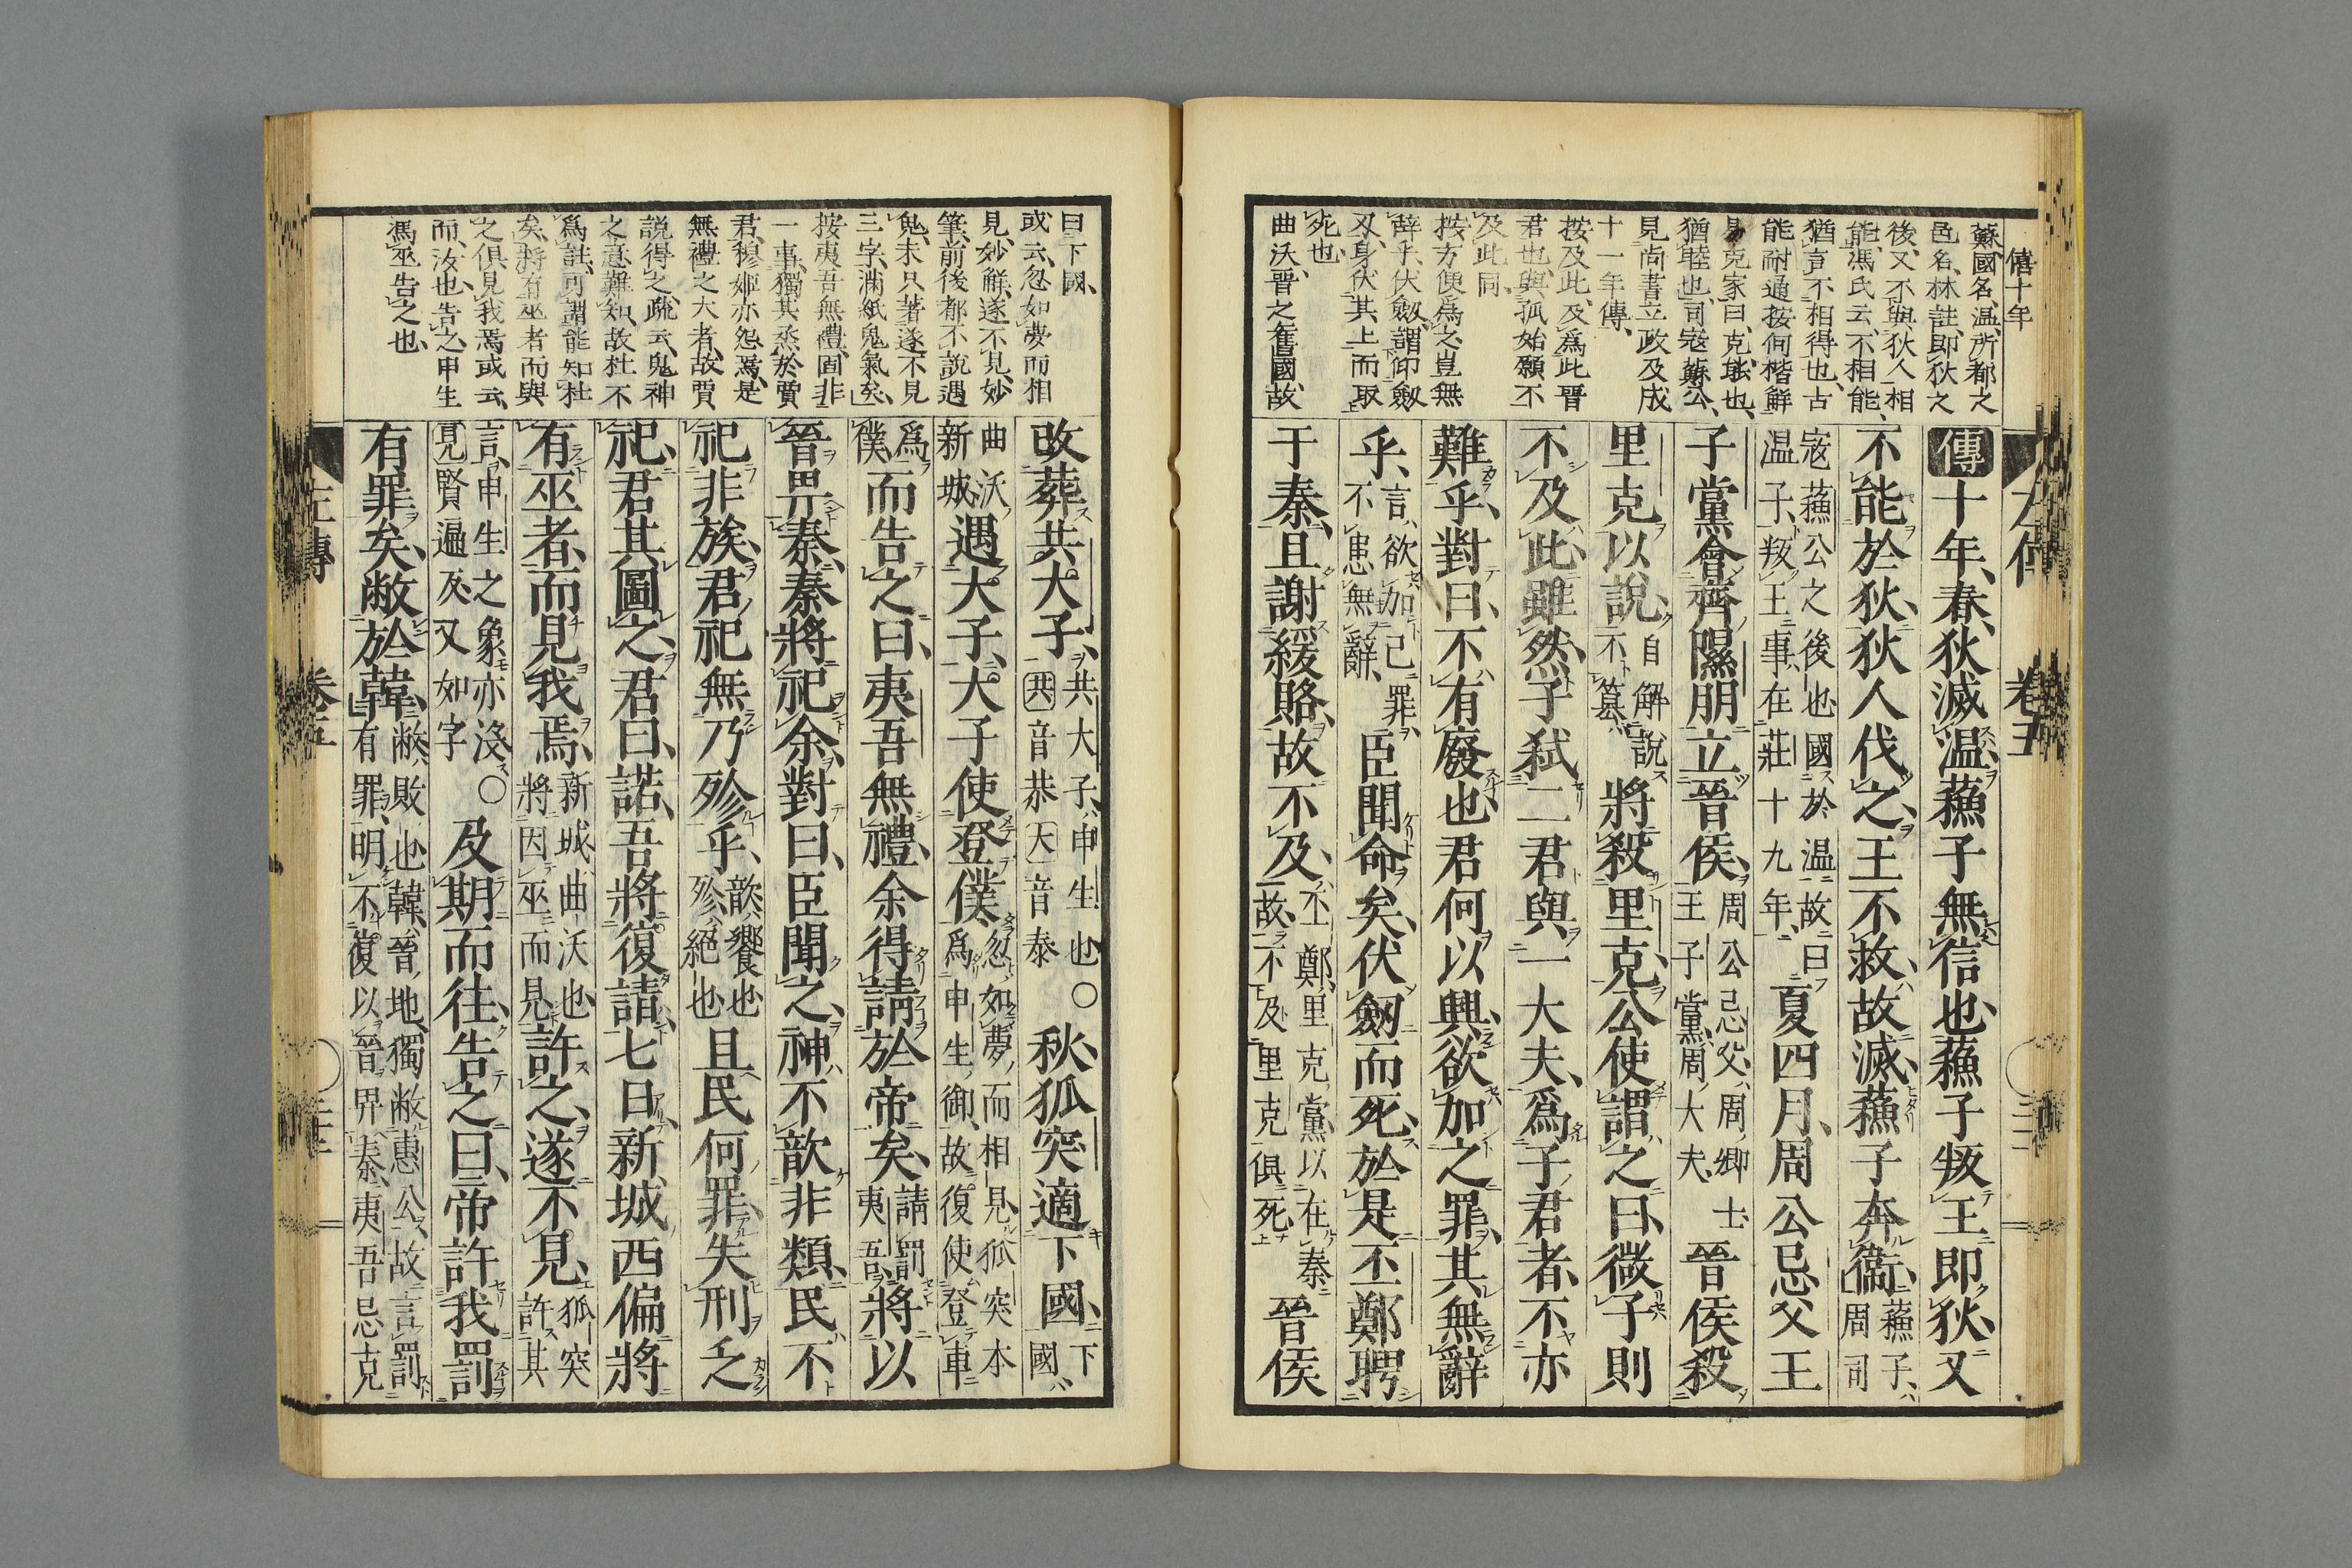 僖十年
蘇國名、温、所都之
邑名、林註、即狄之
後、又不與狄人相
能、馮氏云、不相能、
猶言不相得也、古
能耐通、按何楷解
易克家曰、克、能也、
猶睦也、司寇蘇公、
見尚書立政及成
十一年傳、
按及此、及爲此晉
君也、與孤始願不
及此同、
按、方便爲之、豈無
辭乎、伏劔、謂仰劔
刄、身伏其上而取
死也、
曲沃、晉之舊國、故
傳十年、春、狄滅温、蘓子無信也、蘓子叛王即狄、又
不能於狄、狄人伐之、王不救、故滅、蘓子奔衞、蘓子、周司
寇蘓公之後也、國於温、故曰温子、叛王事、在莊十九年、夏四月、周公忌父王
子黨會齊隰朋立晉侯、周公忌父、周卿士、王子黨、周大夫、晉侯殺
里克以說、自解說不篡、將殺里克、公使謂之曰、微子則
不及此、雖然子弑二君與一大夫、爲子君者、不亦
難乎、對曰、不有廢也君何以興、欲加之罪、其無辭
乎、言、欲加己罪、不患無辭、臣聞命矣、伏劔而死、於是丕鄭聘
于秦、且謝緩賂、故不及、丕鄭、里克黨、以在秦故、不及里克俱死、晉侯
曰下國、
或云、忽如夢而相
見、妙解、遂不見、妙
筆、前後都不說遇
鬼、末只著遂不見
三字、滿紙鬼氣矣、
按夷吾無禮、固非
一事、獨其烝於賈
君、穆姬亦怨焉、是
無禮之大者、故賈
說得之、疏云、鬼神
之意難知、故杜不
爲註、可謂能知杜
矣、將有巫者而與
之俱見我焉、或云、
而、汝也、告之、申生
馮巫告之也、
改葬共大子、共大子、申生也、共音恭大音泰〇秋、狐突適下國、下國、
曲沃新城遇大子、大子使登僕、忽如夢而相見、狐突本爲申生御、故復使登車
爲僕、而告之曰、夷吾無禮、余得請於帝矣、請罰夷吾、將以
晉畀秦、秦將祀余、對曰、臣聞之、神不歆非類、民不
祀非族、君祀無乃殄乎、歆、饗也殄、絕也且民何罪、失刑乏
祀、君其圖之、君曰、諾、吾將復請、七日、新城西偏將
有巫者、而見我焉、新城、曲沃也、將因巫而見、許之、遂不見、狐突許其
言、申生之象亦沒、見賢遍反又如字〇及期而往、告之曰、帝許我罰
有罪矣、敝於韓、敝、敗也、韓、晉地、獨敝惠公、故言罰有罪、明不復以晉畀秦、夷吾忌克